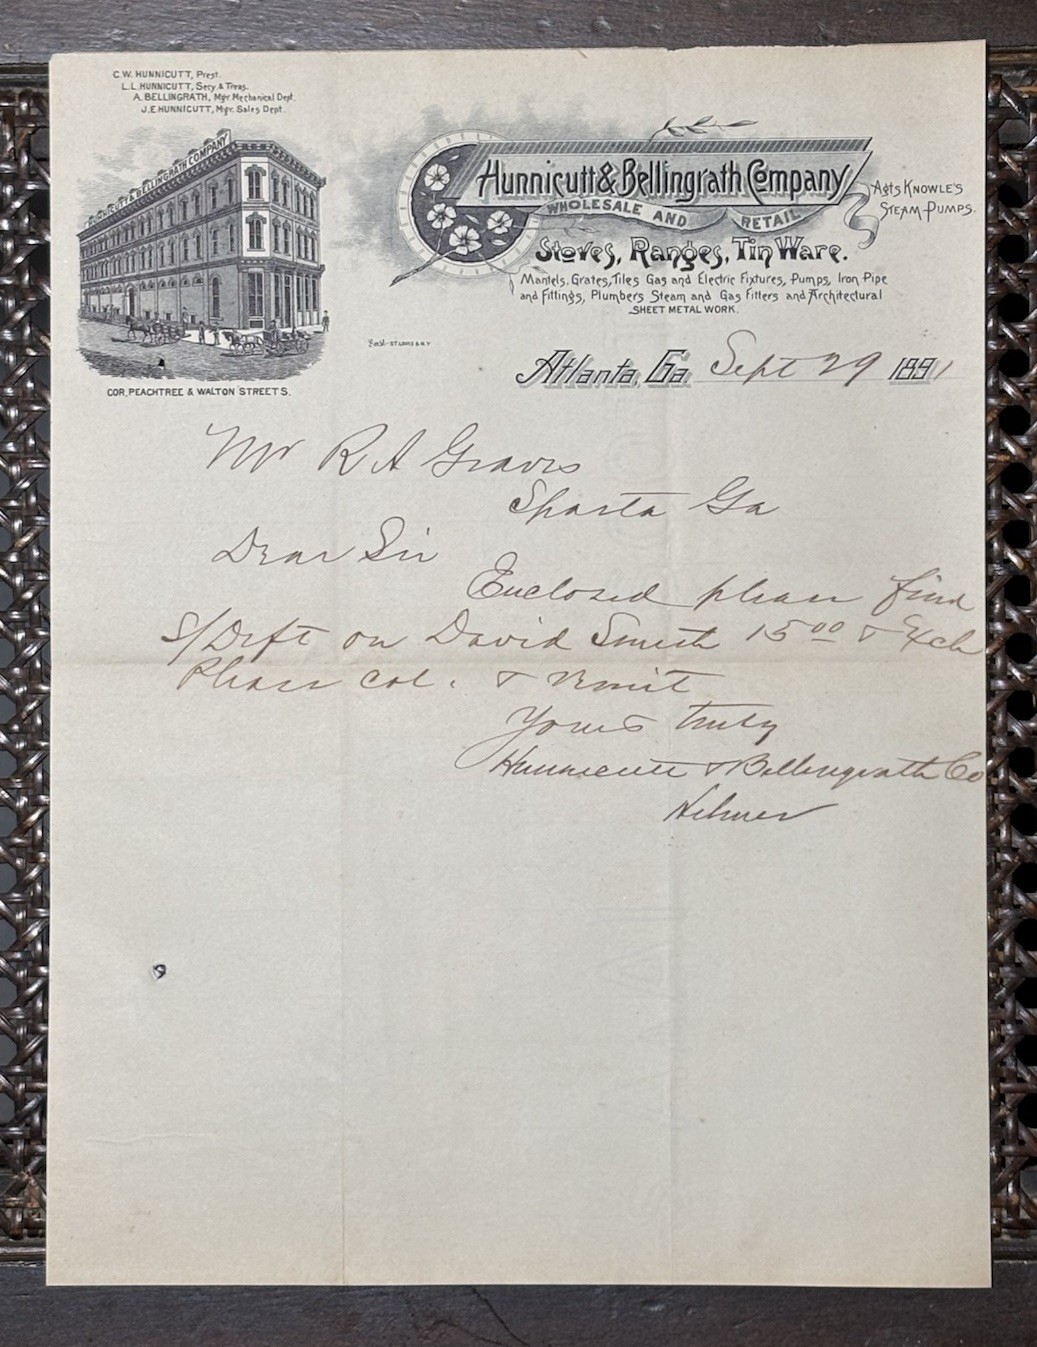 C.W. HUNNICUTT, Prest.
L.L. HUNNICUTT, Secy. & Treas.
A. BELLINGRATH, Mgr. Mechanical Dept.
J.E. HUNNICUTT, Mgr. Sales Dept.
HUNNICUTT & BELLINGRATH COMPANY
COR. PEACHTREE & WALTON STREETS.
Hunnicutt & Bellingrath Company
WHOLESALE AND RETAIL
Agts Knowle's
Steam Pumps.
Stoves, Ranges, Tin Ware.
Mantels, Grates, Tiles Gas and Electric Fixtures, Pumps, Iron Pipe
and Fittings, Plumbers Steam and Gas Fitters and Architectural
SHEET METAL WORK.
Atlanta, Ga. Sept 29 1891
Mr R A Graves
Sparta Ga
Dear Sir
Enclosed please find
S/Drft on David Smith 15 00 & Exch
Please Col. & remit
Yours truly
Hunnicutt & Bellingrath Co